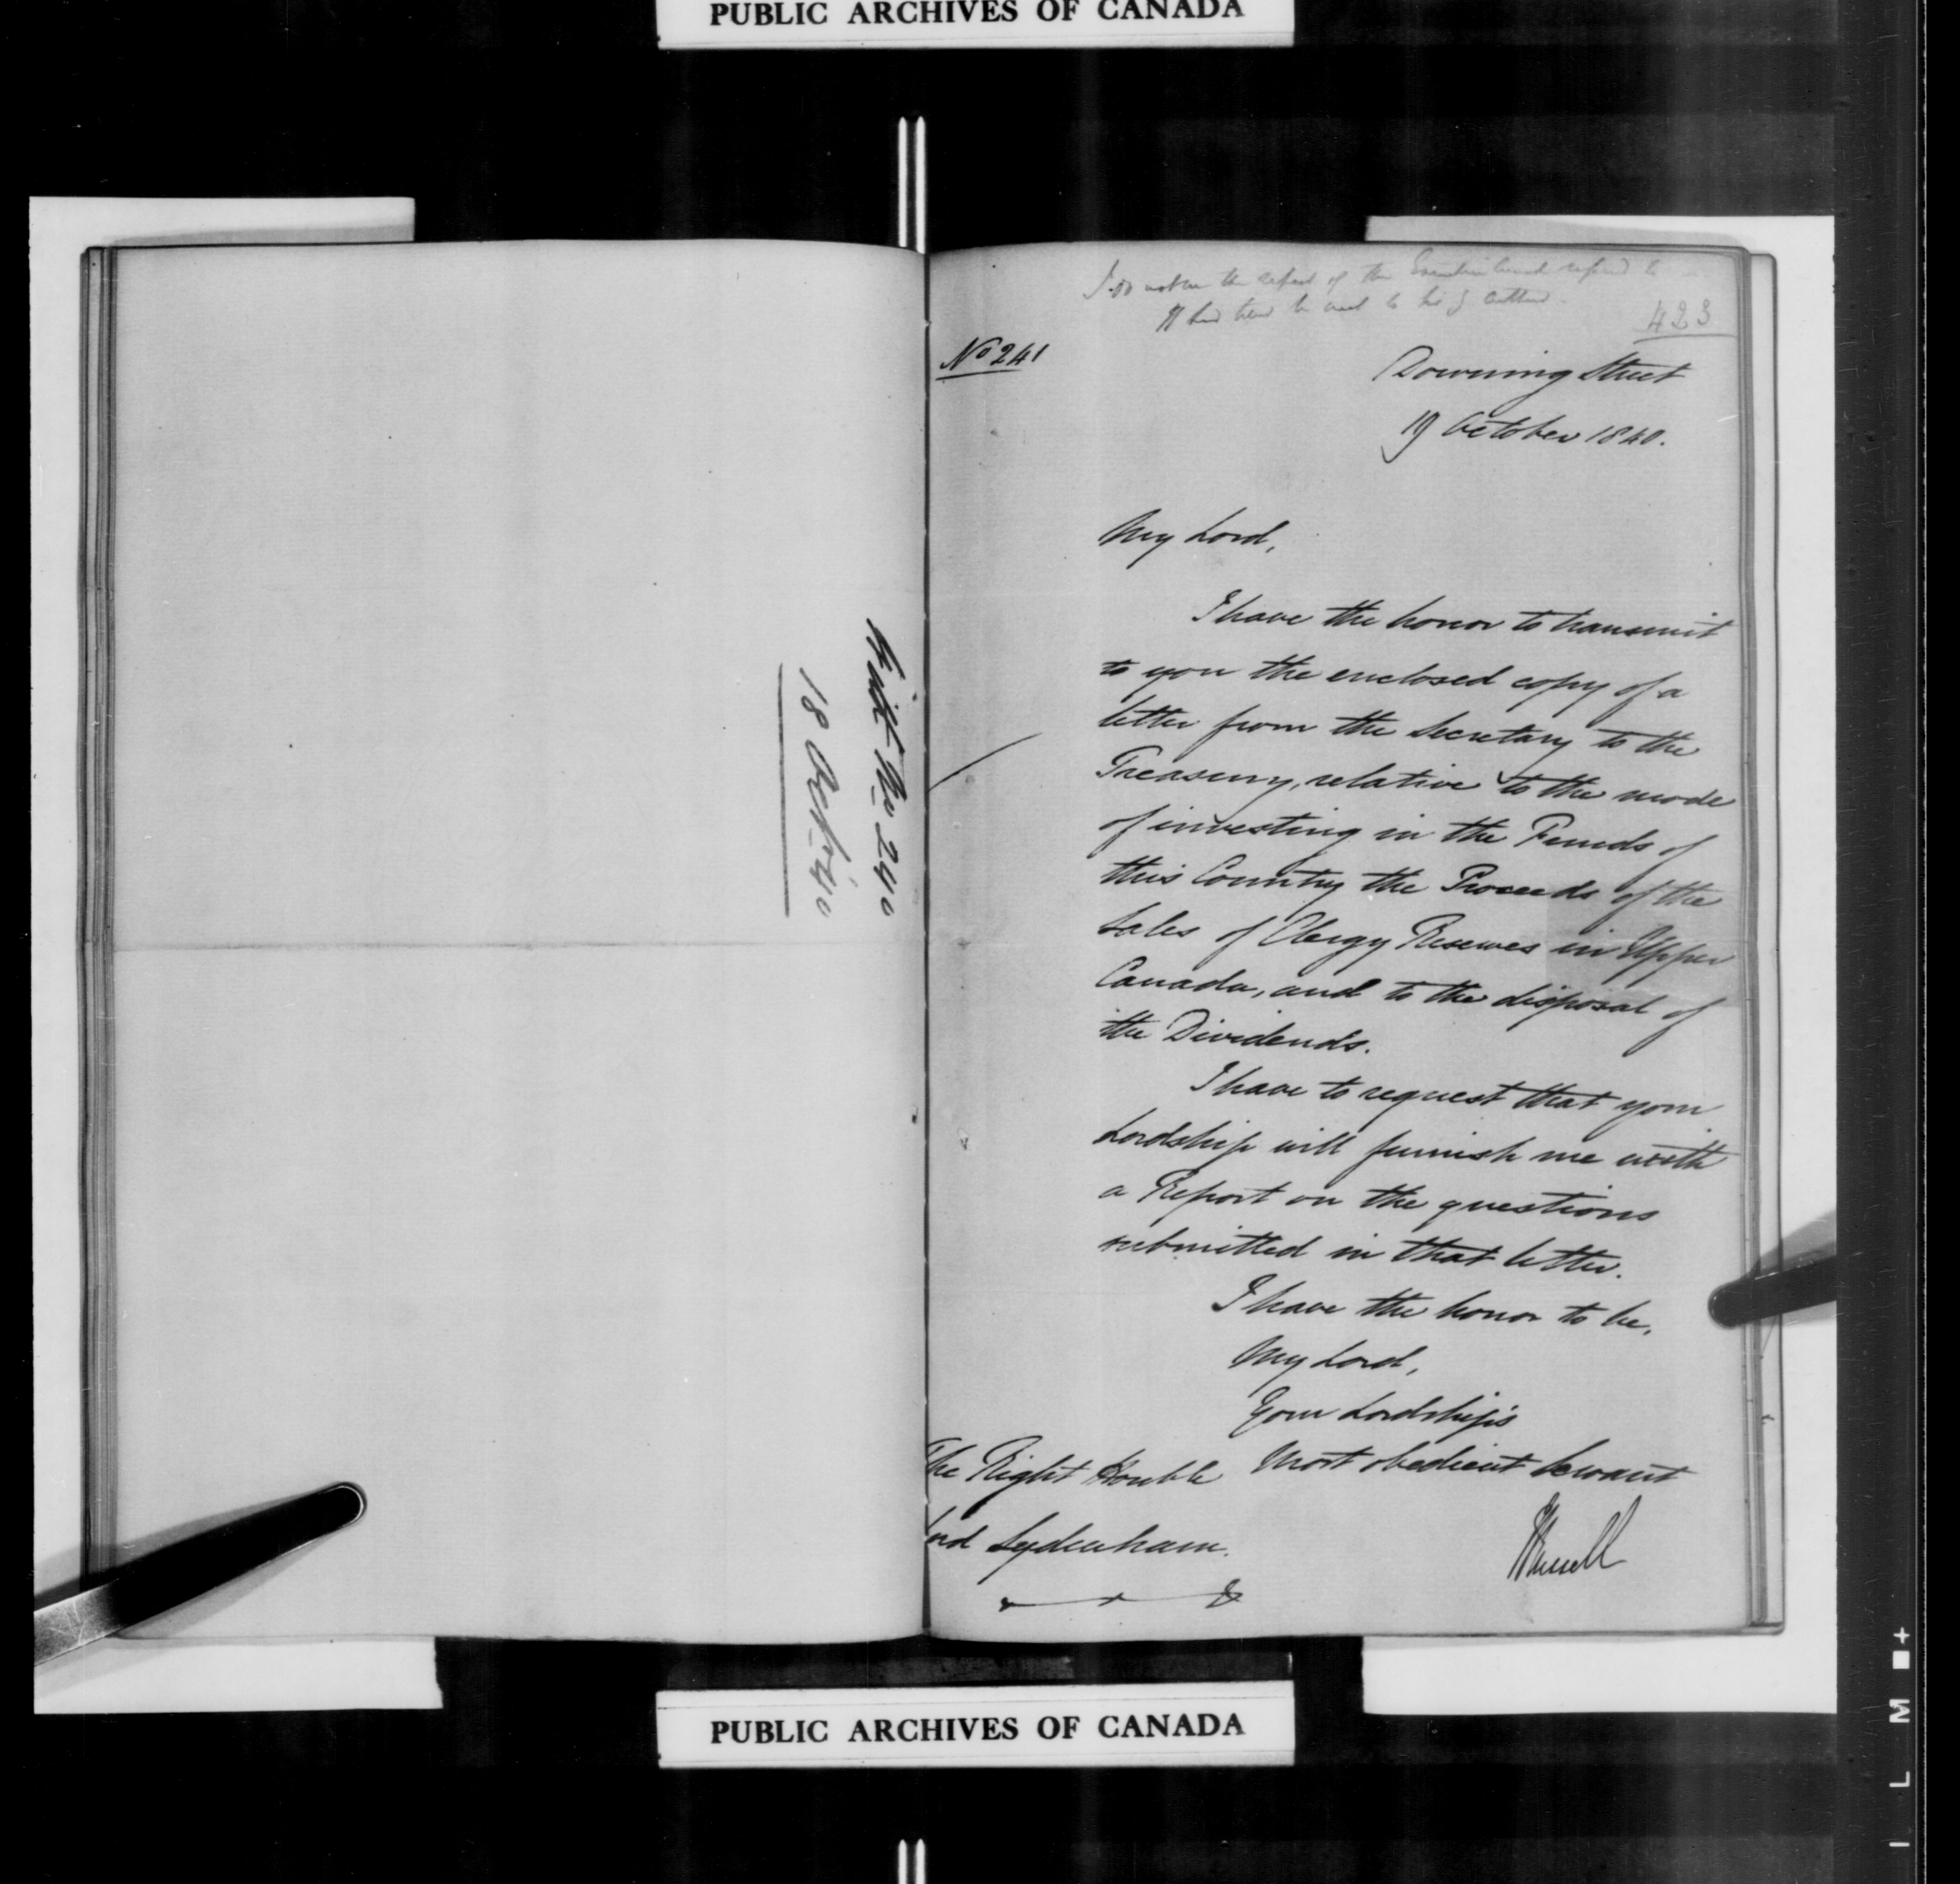 PUBLIC ARCHIVES OF CANADA
No 240
18 Oct. 1840
the report of the
423
No 241
Downing Street
19 October 1840.
My Lord,
I have the honor to transmit
to you the enclosed copy of a
letter from the Secretary to the
Treasury, relative to the mode
of investing in the Funds of
this Country the Proceeds of the
Sales of Clergy Reserves in Upper
Canada, and to the disposal of
the Dividends.
I have to request that your
Lordship will furnish me with
a Report on the questions
submitted in that letter.
I have the honor to be,
My Lord,
Your Lordship's
Most obedient Servant
The Right Honble
Lord Sydenham.
J Russell
PUBLIC ARCHIVES OF CANADA